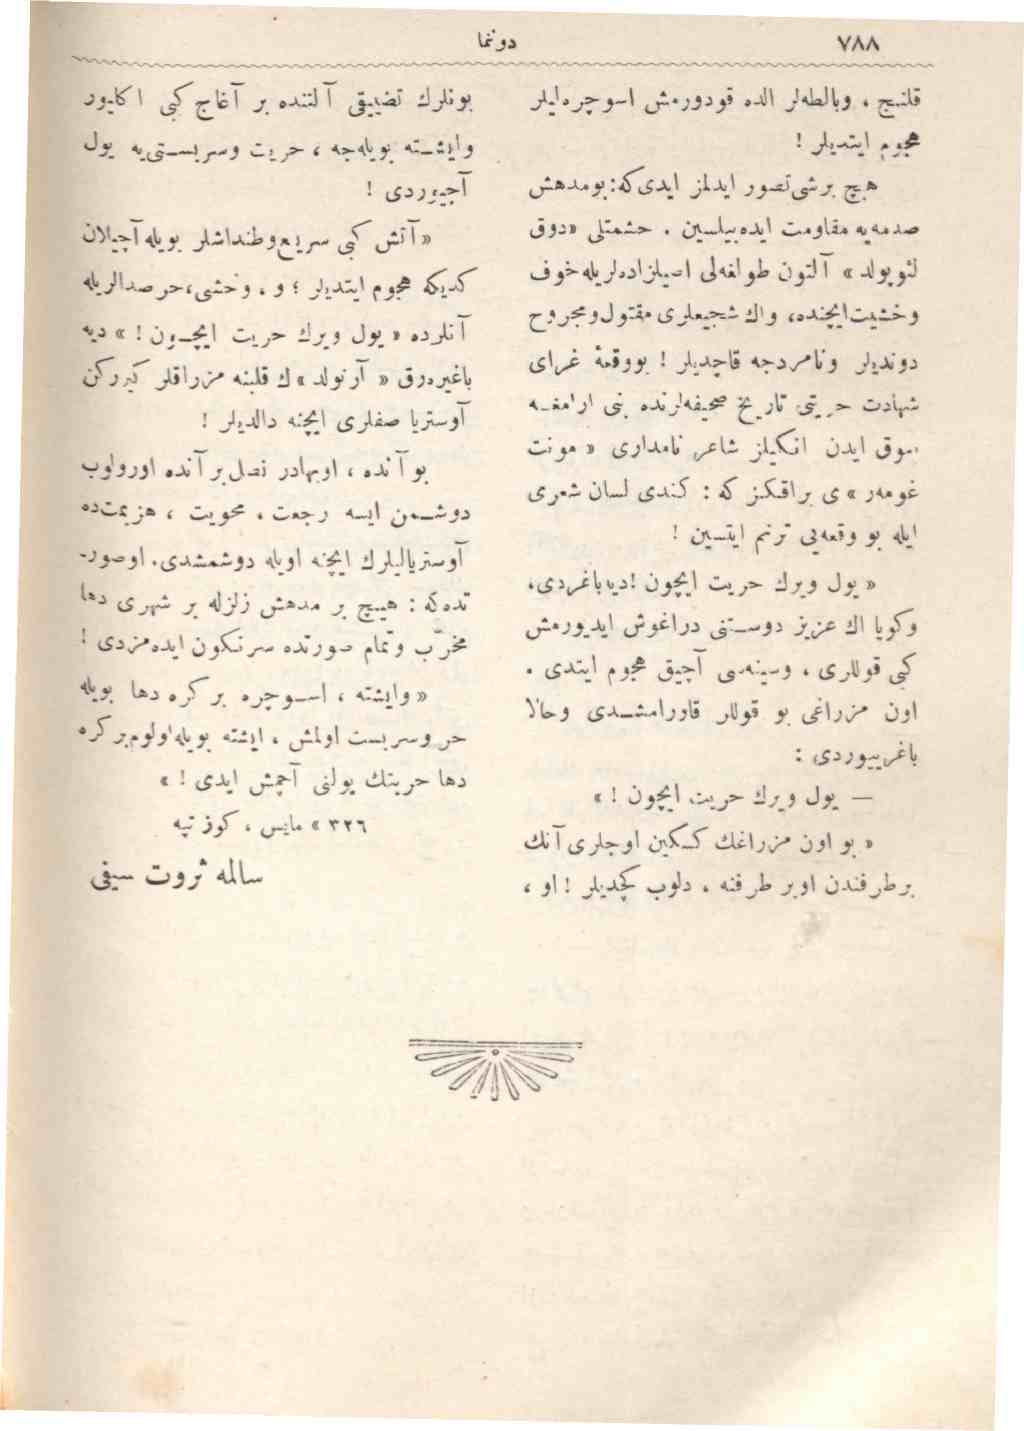 ٧٨٨
دونما
قلنج ، وبالطه‌لر الده قودورمش اسوچره‌ليلر
هجوم ايتديلر !
هيچ برشی تصور ايدلمز ايدی كه : بومدهش
صدمه‌يه مقاومت ايده‌بيلسين . حشمتلی «دوق
لئوپولد» آلتون طولغه‌لی اصيلزاده‌لريله خوف
وخشيت ايچنده، واك شجيعلری مقتول ومجروح
دونديلر ونامردجه قاچديلر ! بووقعهٔ غرای
شهادت حريتی تاريخ صحيفه‌لرنده بنی ارامغه
سوق ايدن انكيليز شاعر نامداری « مونت
غومه‌ر » ی براقكز كه : كندی لسان شعری
ايله بو وقعه‌يی ترنم ايتسين !
« يول ويرك حريت ايچون ! ديه باغردی،
وكويا اك عزيز دوستنی دراغوش ايديورمش
كبی قوللری ، وسينه‌سی آچيق هجوم ايتدی .
اون مزراغی بو قوللر قاورامشدی وحالا
باغرييوردی :
— يول ويرك حريت ايچون ! »
« بو اون مزراغك كسكين اوجلری آنك
برطرفندن اوبر طرفنه ، دلوب كچديلر ! او ،
بونلرك تضييقی آلتنده بر آغاج كبی اكليور
وايشته بويله‌جه ، حريت وسربستی‌يه يول
آچيوردی !
« آتش كبی سريع وطنداشلر بويله آچيلان
كديكه هجوم ايتديلر ؛ و ، وحشی، حر صدالريله
آنلرده « يول ويرك حريت ايچون ! » ديه
باغيره‌رق « آرنولد » ك قلبنه مزراقلر كيرركن
آوستريا صفلری ايچنه دالديلر !
بو آنده ، اوبهادر نصل بر آنده اورولوب
دوشمن ايسه رجعت ، محويت ، هزيمت ده
آوسترياليلرك ايچنه اويله دوشمشدی. اوصور-
تده كه : هيچ بر مدهش زلزله بر شهری دها
مخرّب وتمام صورتده سرنكون ايده‌مزدی !
« وايشته ، اسوچره بر كره دها بويله
حر وسربست اولمش ، ايشته بويله اولوم بر كره
دها حريتك يولنی آچمش ايدی ! »
٣٢٦ « مايس ، كوز تپه
سالمه ثروت سيفی